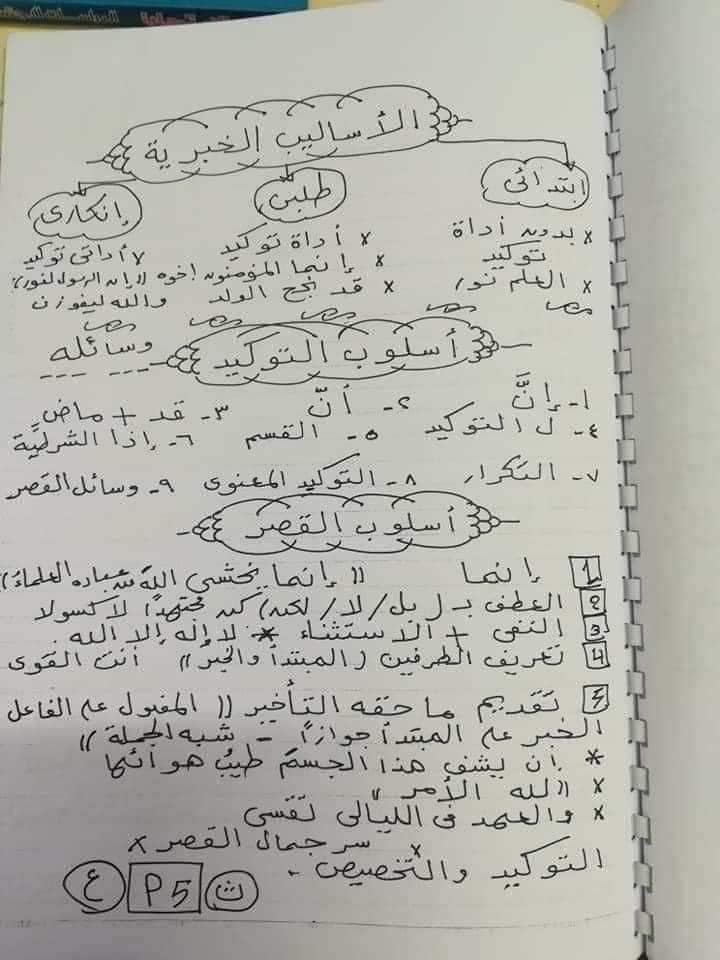 الأساليب الخبرية
ابتدائى
طلبى
إنكارى
x بدون أداة توكيد
x العلم نور
x أداة توكيد
x إنما المؤمنون إخوه
x قد نجح الولد
أداتى توكيد
((إن الرسول لنور))
والله ليفوزن
أسلوب التوكيد
وسائله
١- إنَّ ٢- أنّ ٣- قد + ماضٍ
٤- ل التوكيد ٥- القسم ٦- إذا الشرطية
٧- التكرار ٨- التوكيد المعنوى ٩- وسائل القصر
أسلوب القصر
1 إنما ((إنما يخشى الله من عباده العلماءُ))
2 العطف بـ (بل/لا/لكن) كن مجتهدًا لا كسولا
3 النفى + الاستثناء * لا إله إلا الله.
4 تعريف الطرفين (المبتدأ والخبر)) أنت القوى
5 تقديم ما حقه التأخير ((المفبول على الفاعل
الخبر على المبتدأ جوازاً - شبه الجملة))
* إن يشف هذا الجسمَ طيبُ هوائها
x ((لله الأمر))
x والعهد فى الليالى تقسى
x سر جمال القصر x
التوكيد والتخصيص.
ث P5 ع